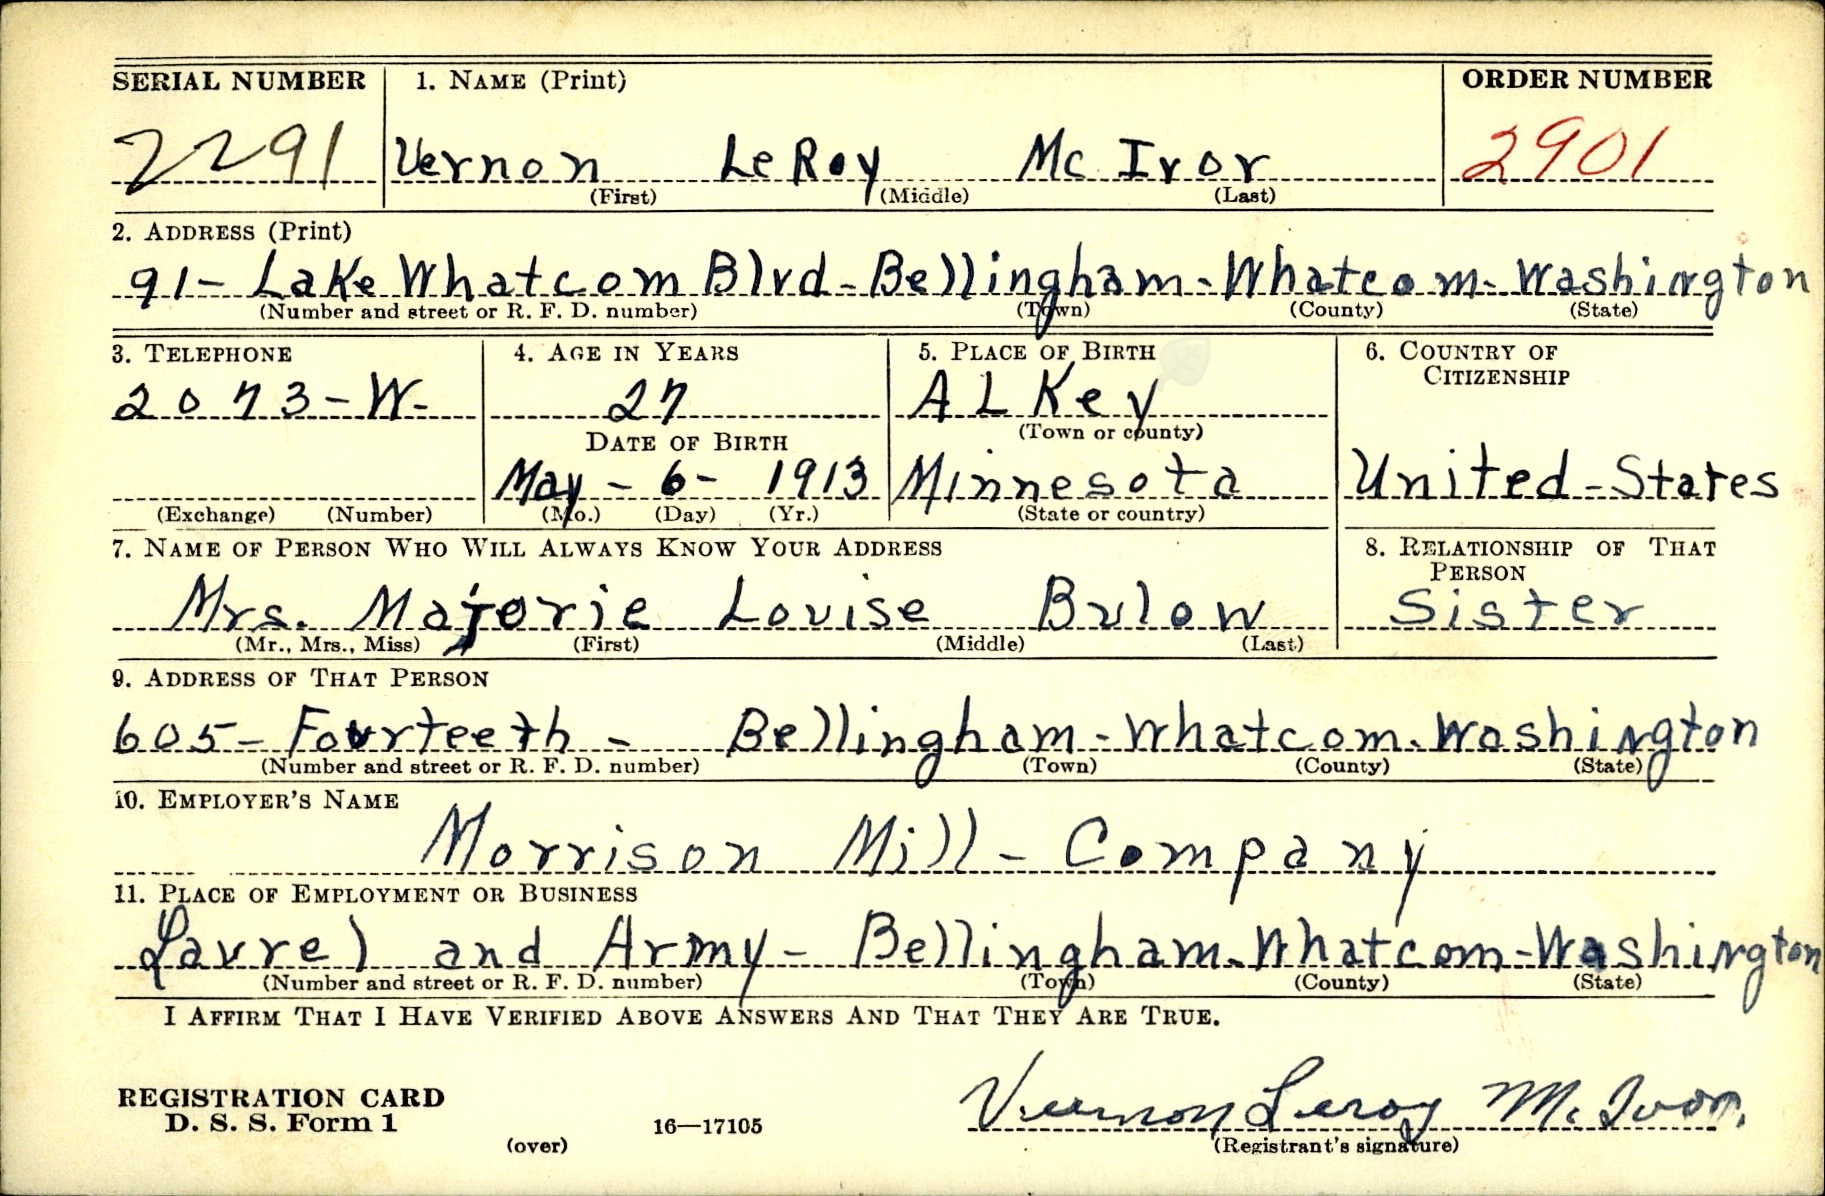 SERIAL NUMBER 1. NAME (Print) ORDER NUMBER
2291 Vernon LeRoy Mc Ivor 2901
(First) (Middle) (Last)
2. ADDRESS (Print)
91- Lake Whatcom Blvd - Bellingham - Whatcom - Washington
(Number and street or R. F. D. number) (Town) (County) (State)
3. TELEPHONE 4. AGE IN YEARS 5. PLACE OF BIRTH 6. COUNTRY OF
CITIZENSHIP
2073-W- 27 ALKey
(Town or county)
DATE OF BIRTH
May - 6 - 1913 Minnesota United-States
(Exchange) (Number) (Mo.) (Day) (Yr.) (State or country)
7. NAME OF PERSON WHO WILL ALWAYS KNOW YOUR ADDRESS 8. RELATIONSHIP OF THAT
PERSON
Mrs. Majorie Louise Bulow Sister
(Mr., Mrs., Miss) (First) (Middle) (Last)
9. ADDRESS OF THAT PERSON
605- Fourteeth - Bellingham - Whatcom. Washington
(Number and street or R. F. D. number) (Town) (County) (State)
10. EMPLOYER'S NAME
Morrison Mill - Company
11. PLACE OF EMPLOYMENT OR BUSINESS
Laurel and Army - Bellingham - Whatcom - Washington
(Number and street or R. F. D. number) (Town) (County) (State)
I AFFIRM THAT I HAVE VERIFIED ABOVE ANSWERS AND THAT THEY ARE TRUE.
REGISTRATION CARD
D. S. S. Form 1
(over) 16—17105 Vernon Leroy Mc Ivor.
(Registrant's signature)